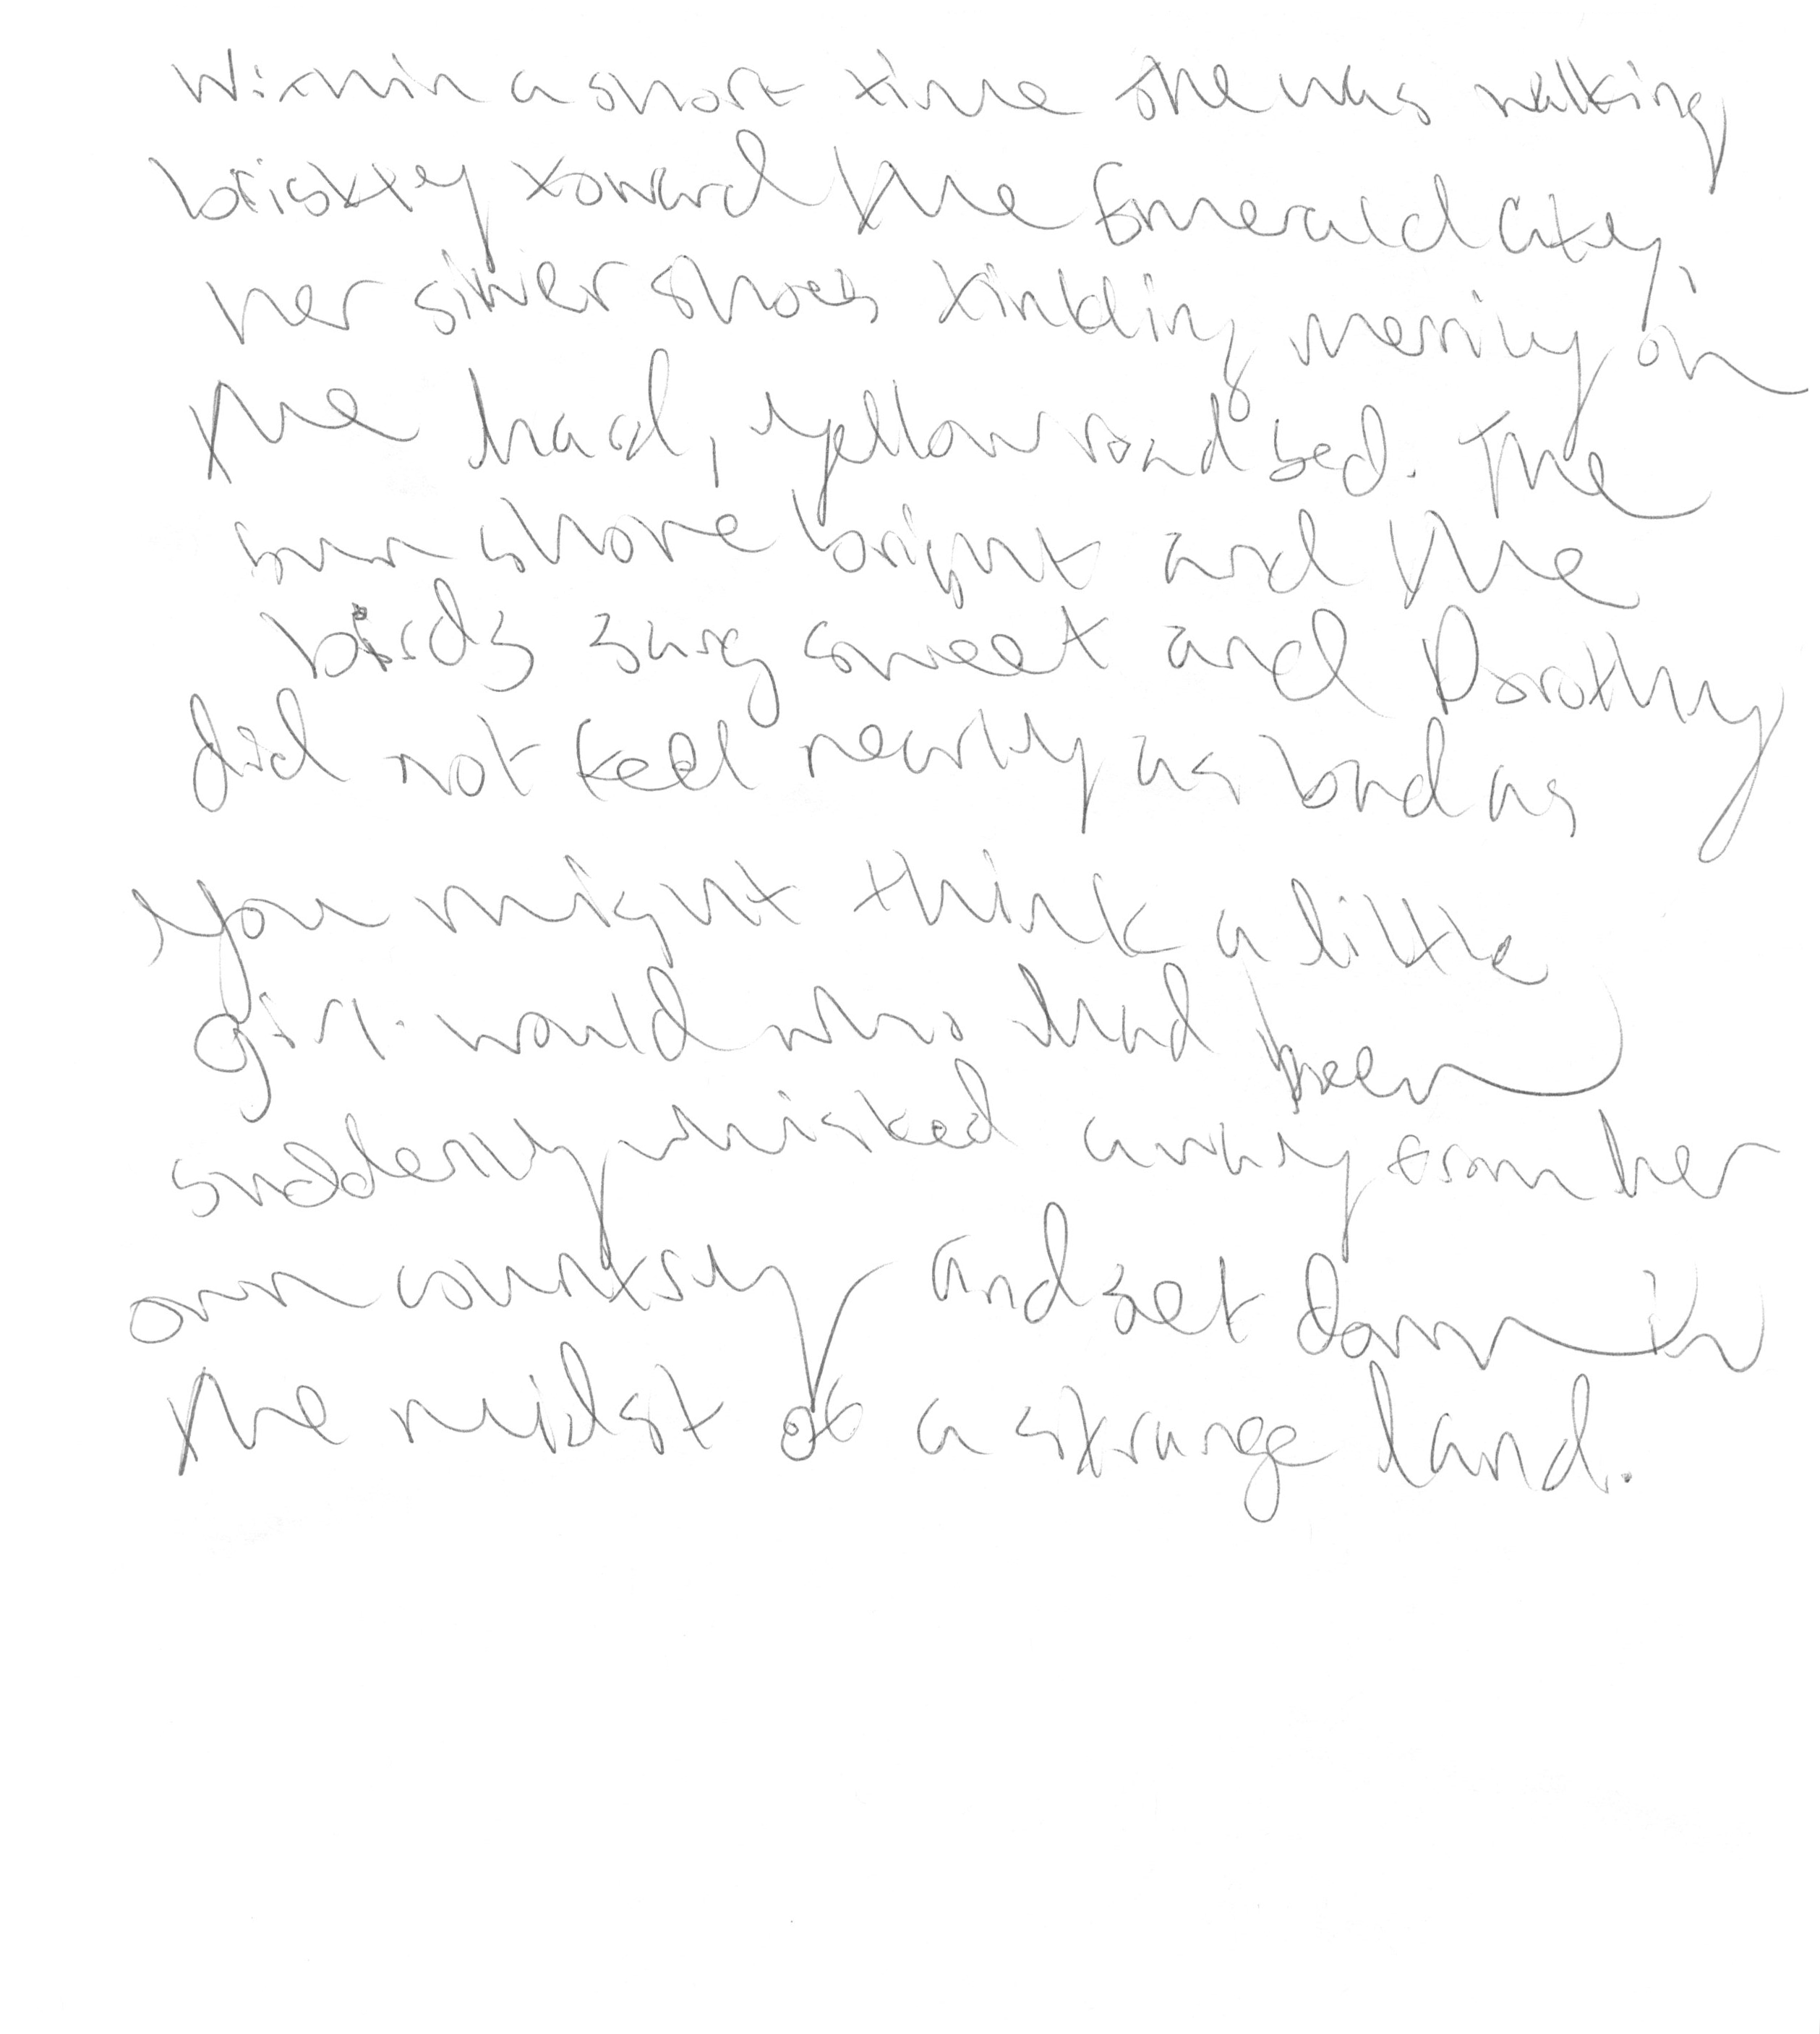 Within a short time she was walking
briskly toward the Emerald City,
her silver shoes tinkling merrily on
the hard, yellow road bed. The
sun shone bright and the
birds sang sweet and Dorothy
did not feel nearly as bad as
you might think a little
girl would who had been
suddenly whisked away from her
own country and set down in
the midst of a strange land.